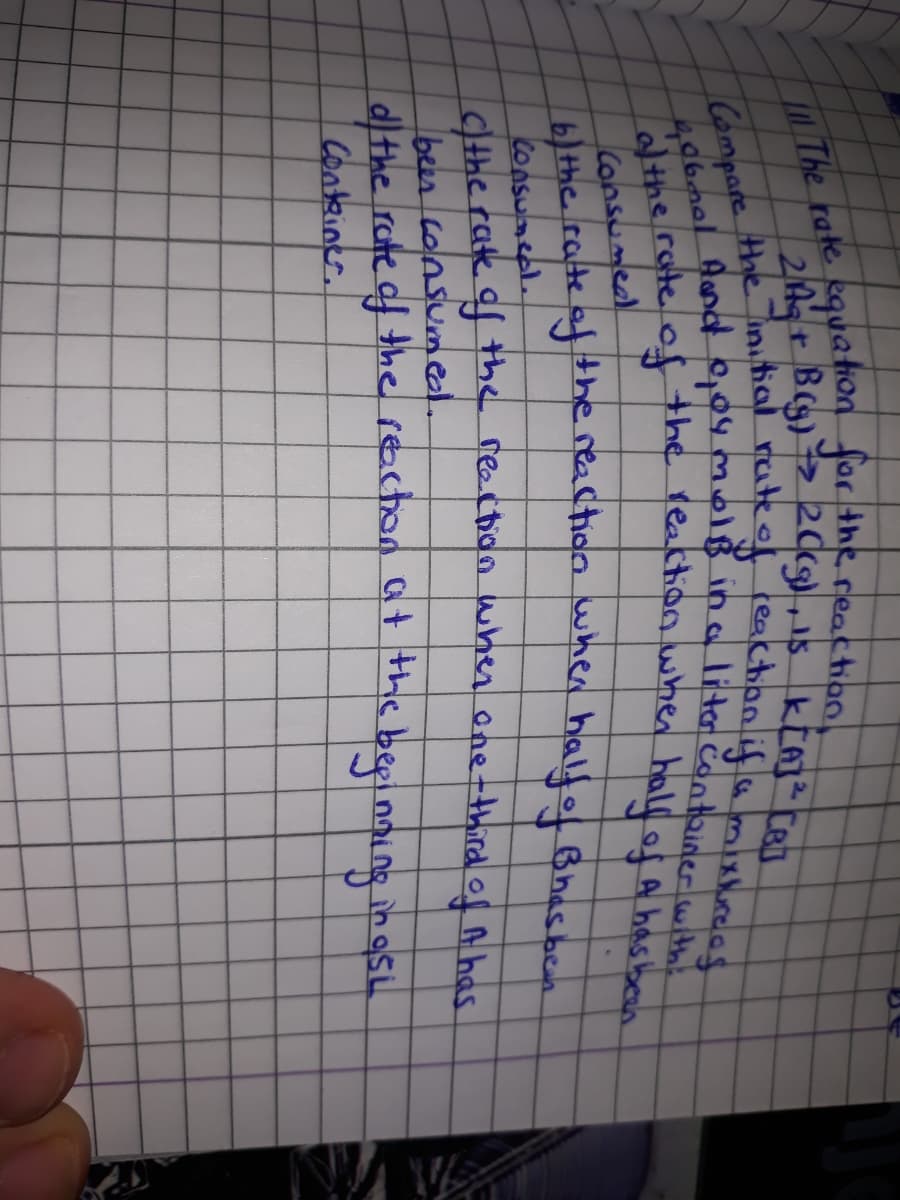 111 The rate equation for the reaction,
2A(g) + B(g) → 2C(g), is k[A]² [B]
Compare the initial rate of reaction if a mixture of
0,06mol A and 0,04 mol B in a liter container with:
a) the rate of the reaction when half of A has been
consumed
b) the rate of the reaction when half of B has been
consumed.
c) the rate of the reaction when one-third of A has
been consumed.
d) the rate of the reaction at the beginning in 0,5L
Container.